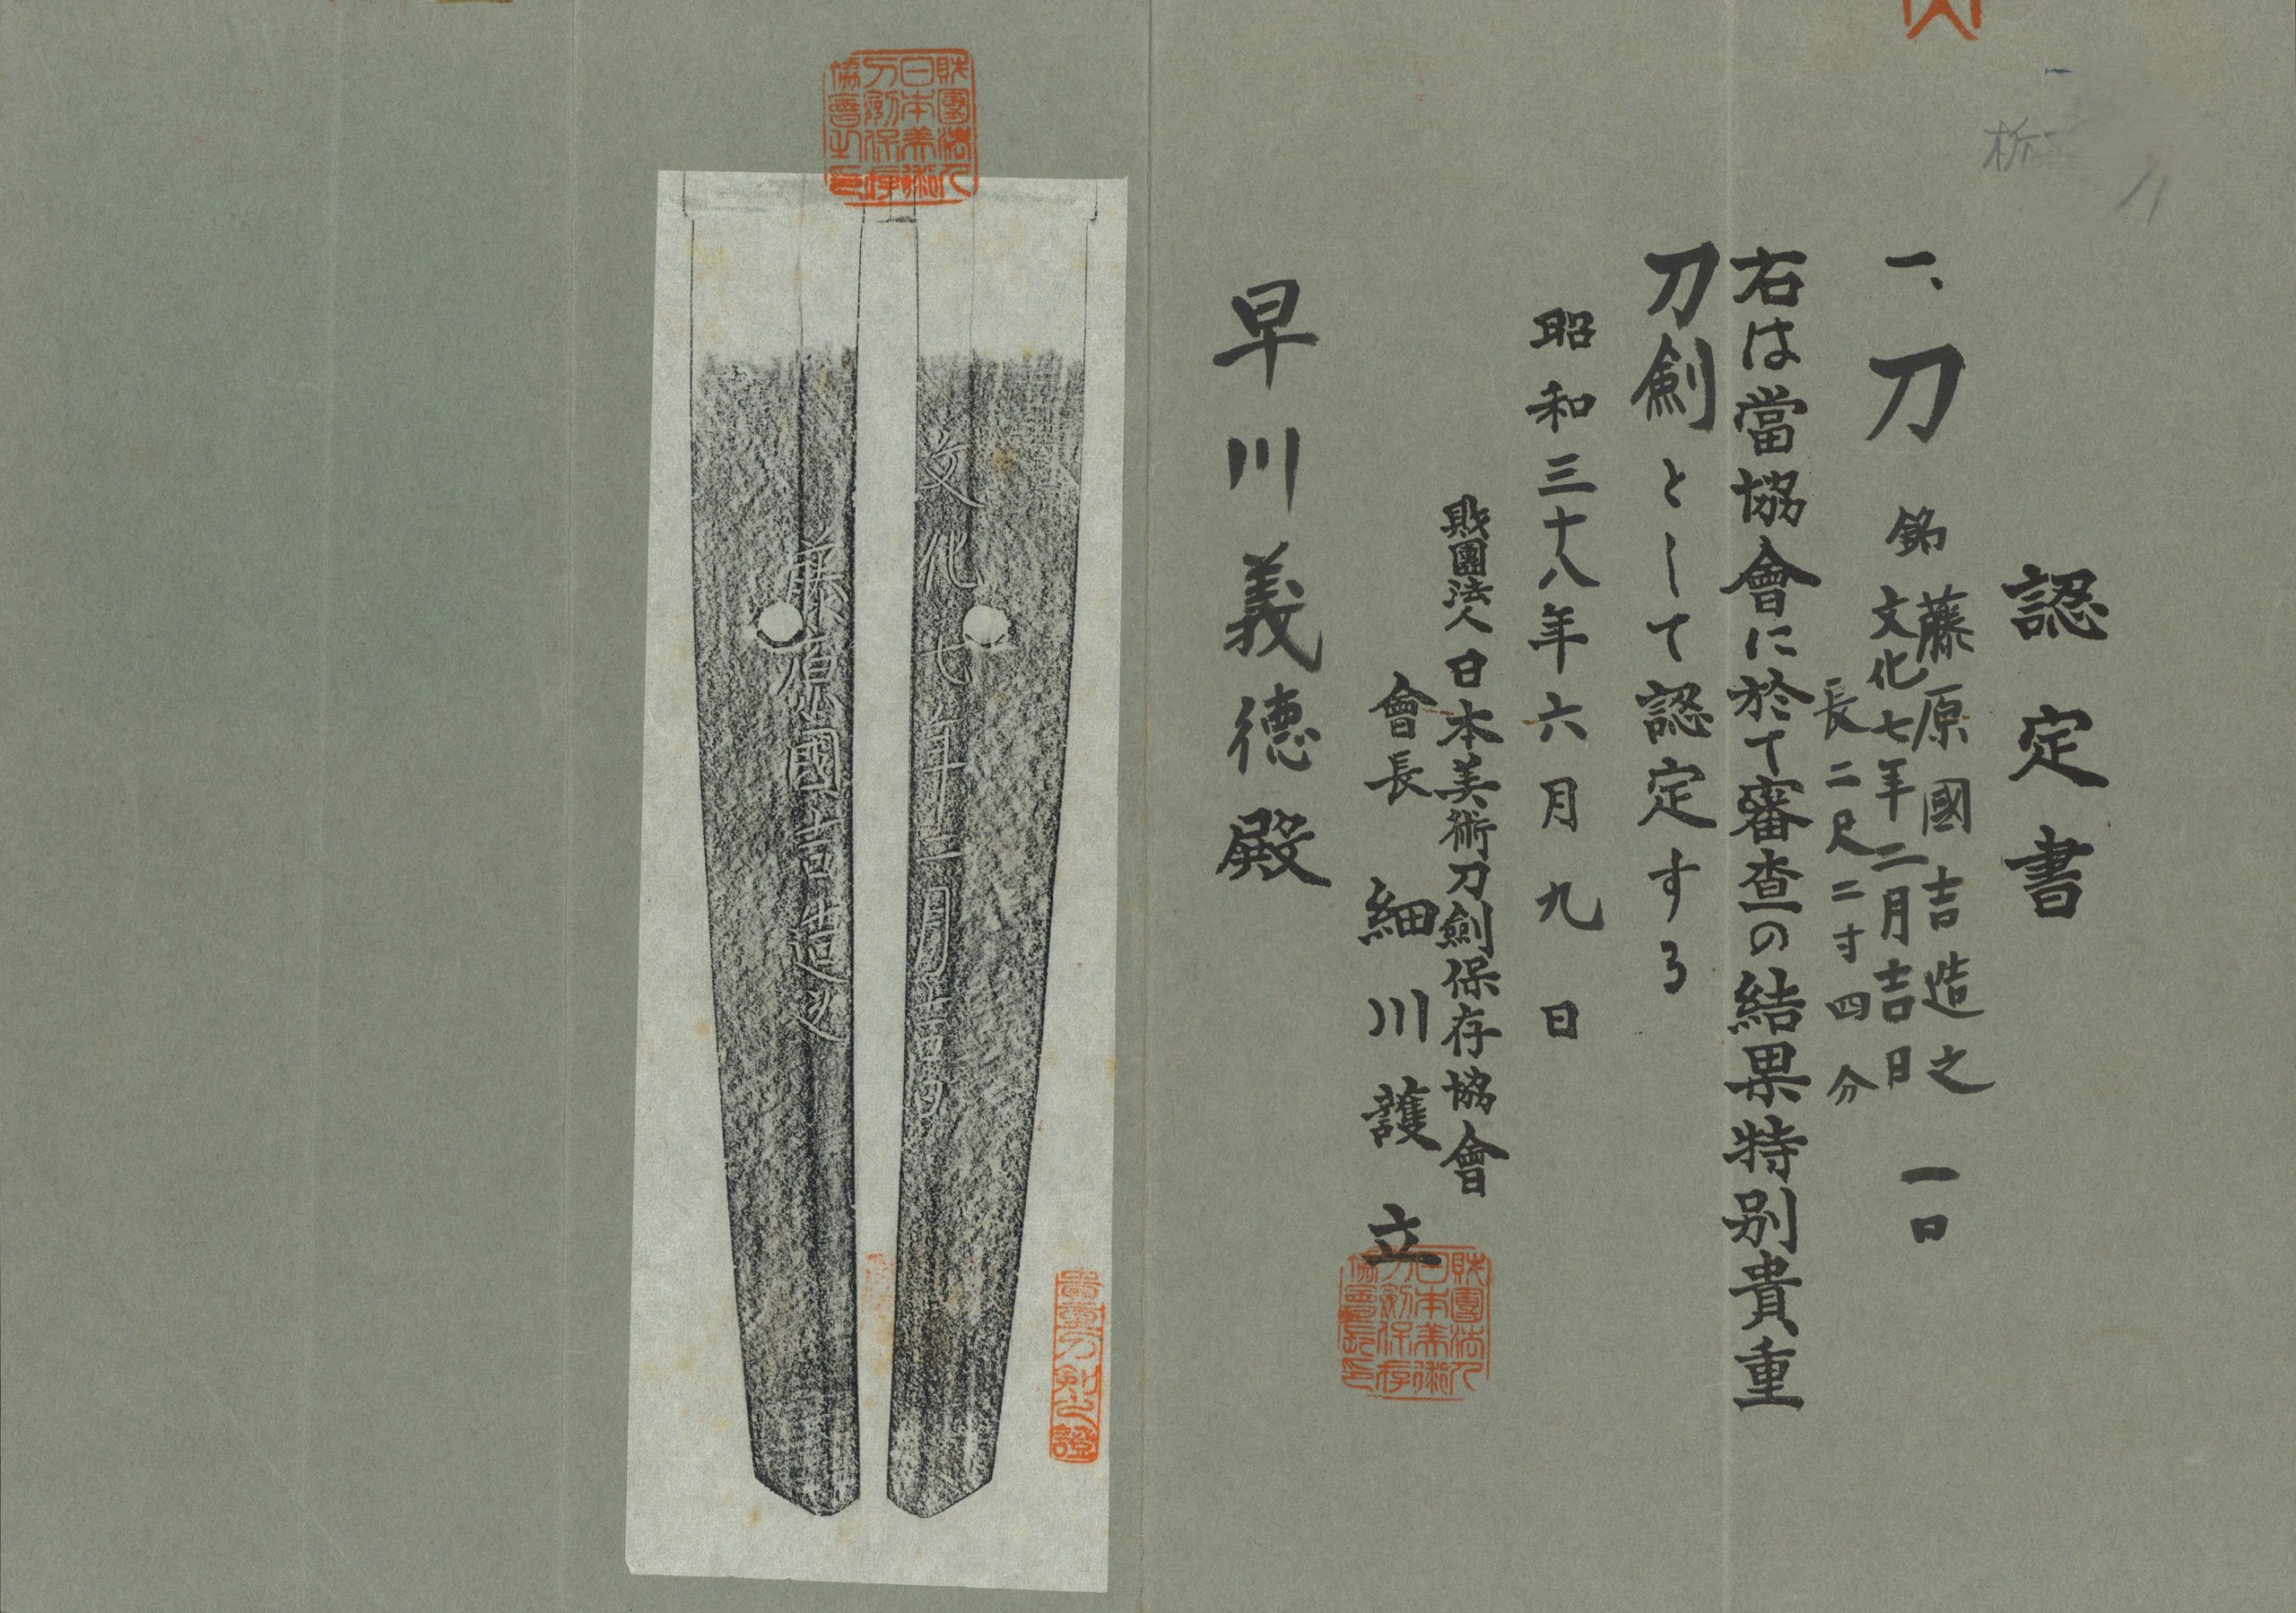 認定書
一、刀 銘 藤原國吉造之 一口
文化七年二月吉日
長二尺二寸四分
右は當協會に於て審査の結果特別貴重
刀劍として認定する
昭和三十八年六月九日
財團法人日本美術刀劍保存協會
會長 細川護立
財團法人
日本美術
刀劍保存
協會長印
早川義德殿
財團法人
日本美術
刀劍保存
協會之印
文化七年二月吉日
藤原國吉造之
貴重刀剣之證